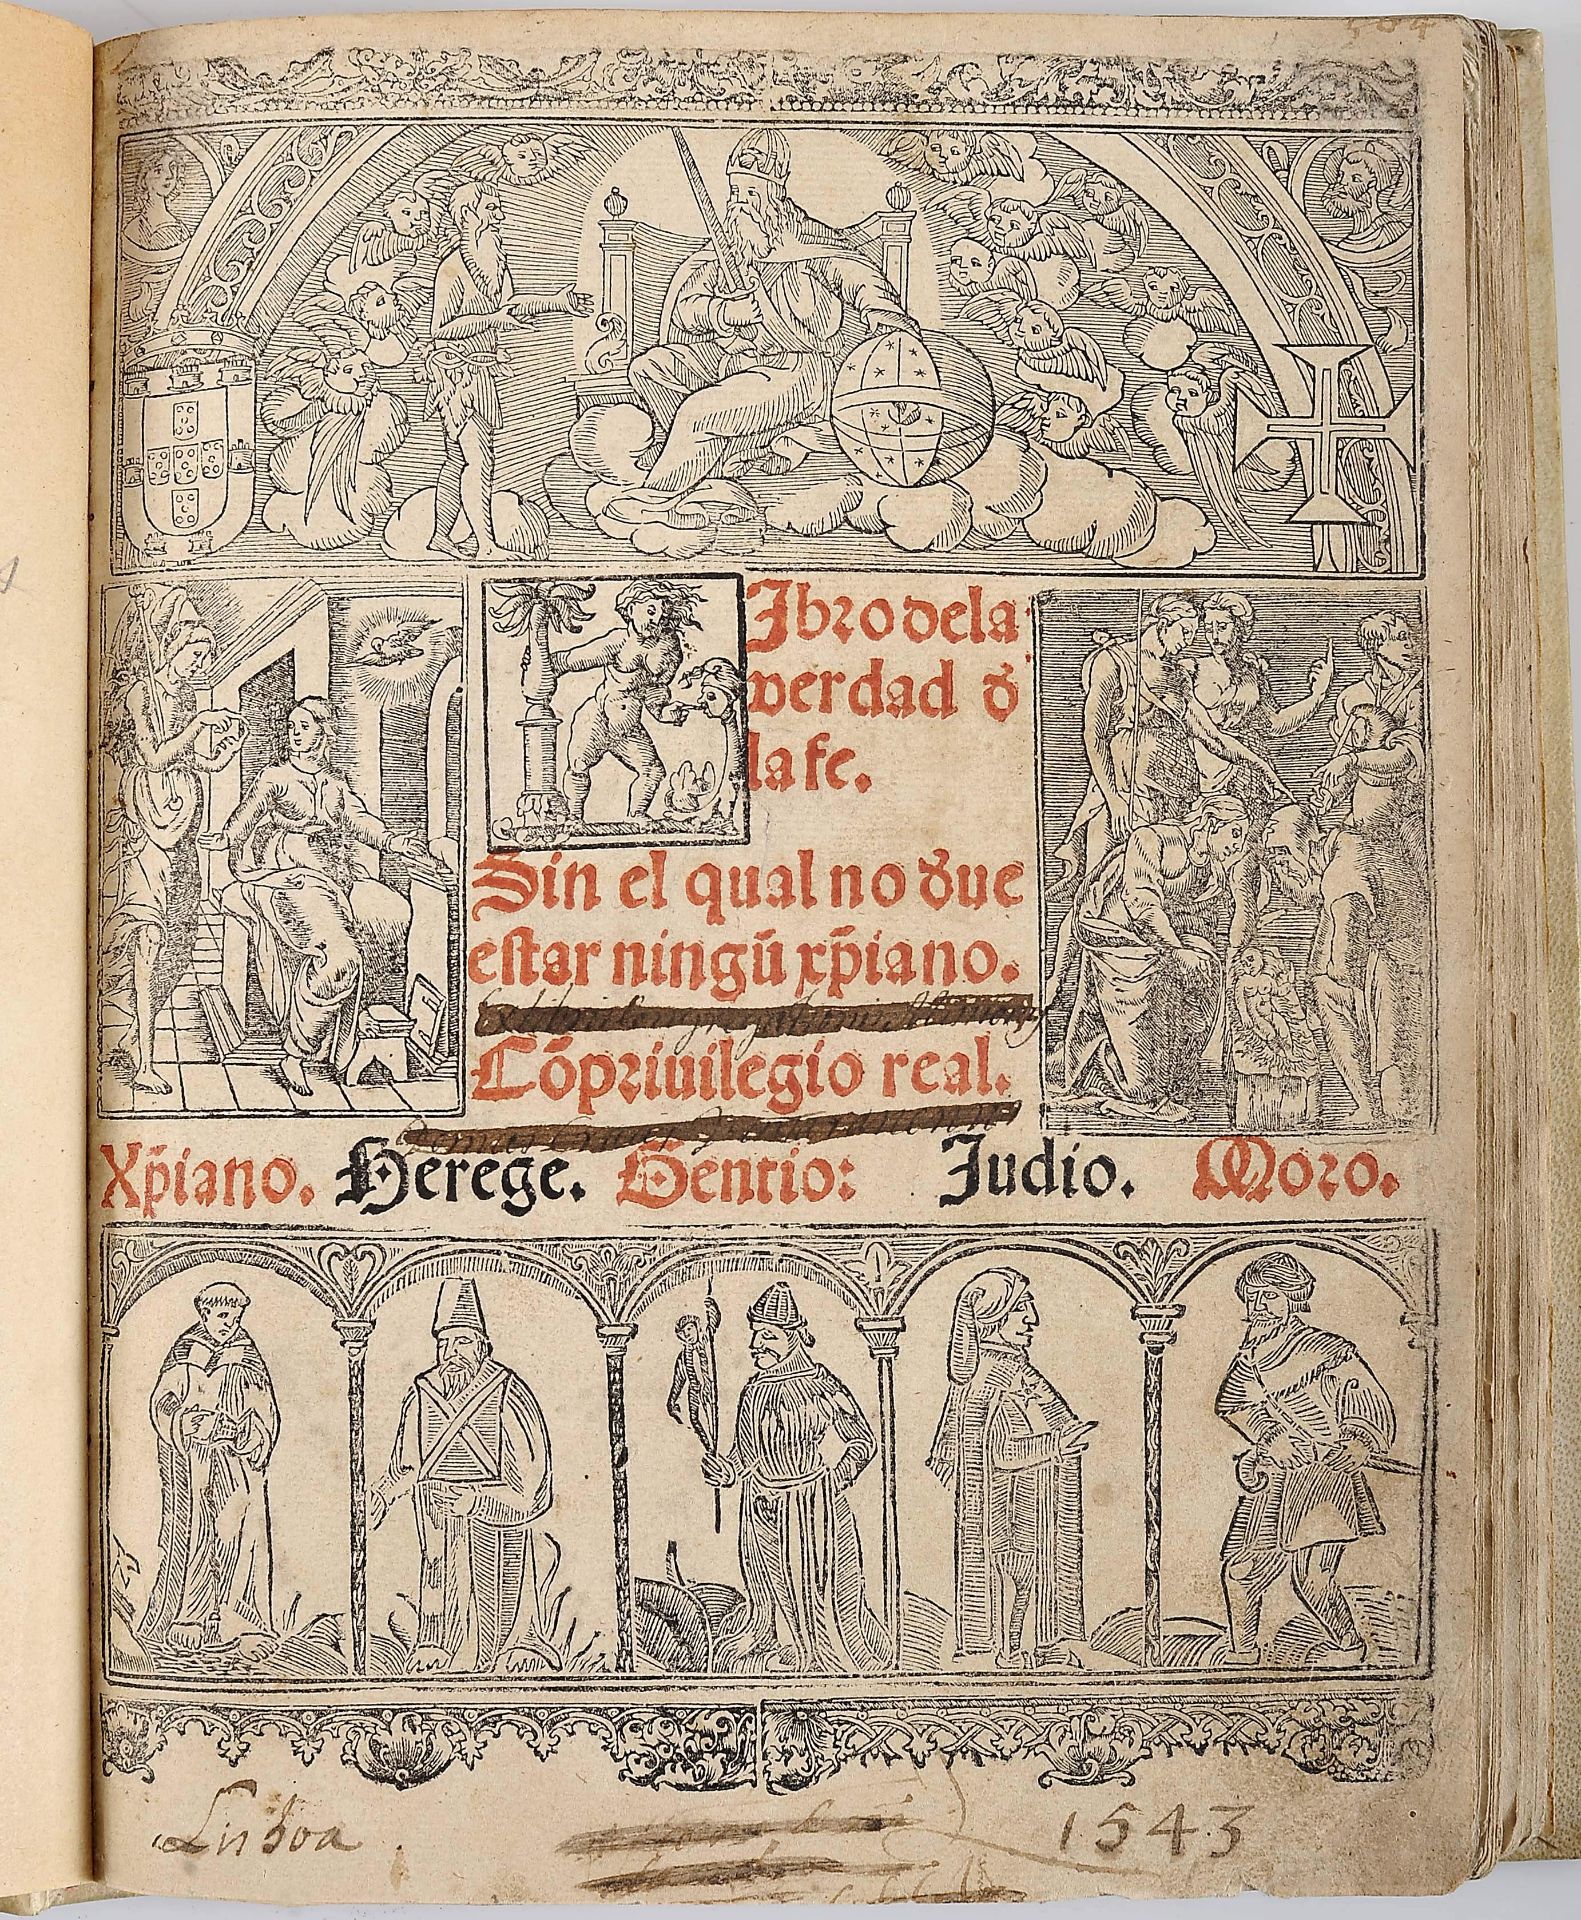 Libro dela
verdad d̄
la fe.
Sin el qual no d̄ue
estar ningū xp̄iano.
Cō priuilegio real.
Xp̄iano. Herege. Gentio: Judio. Moro.
Lisboa 1543